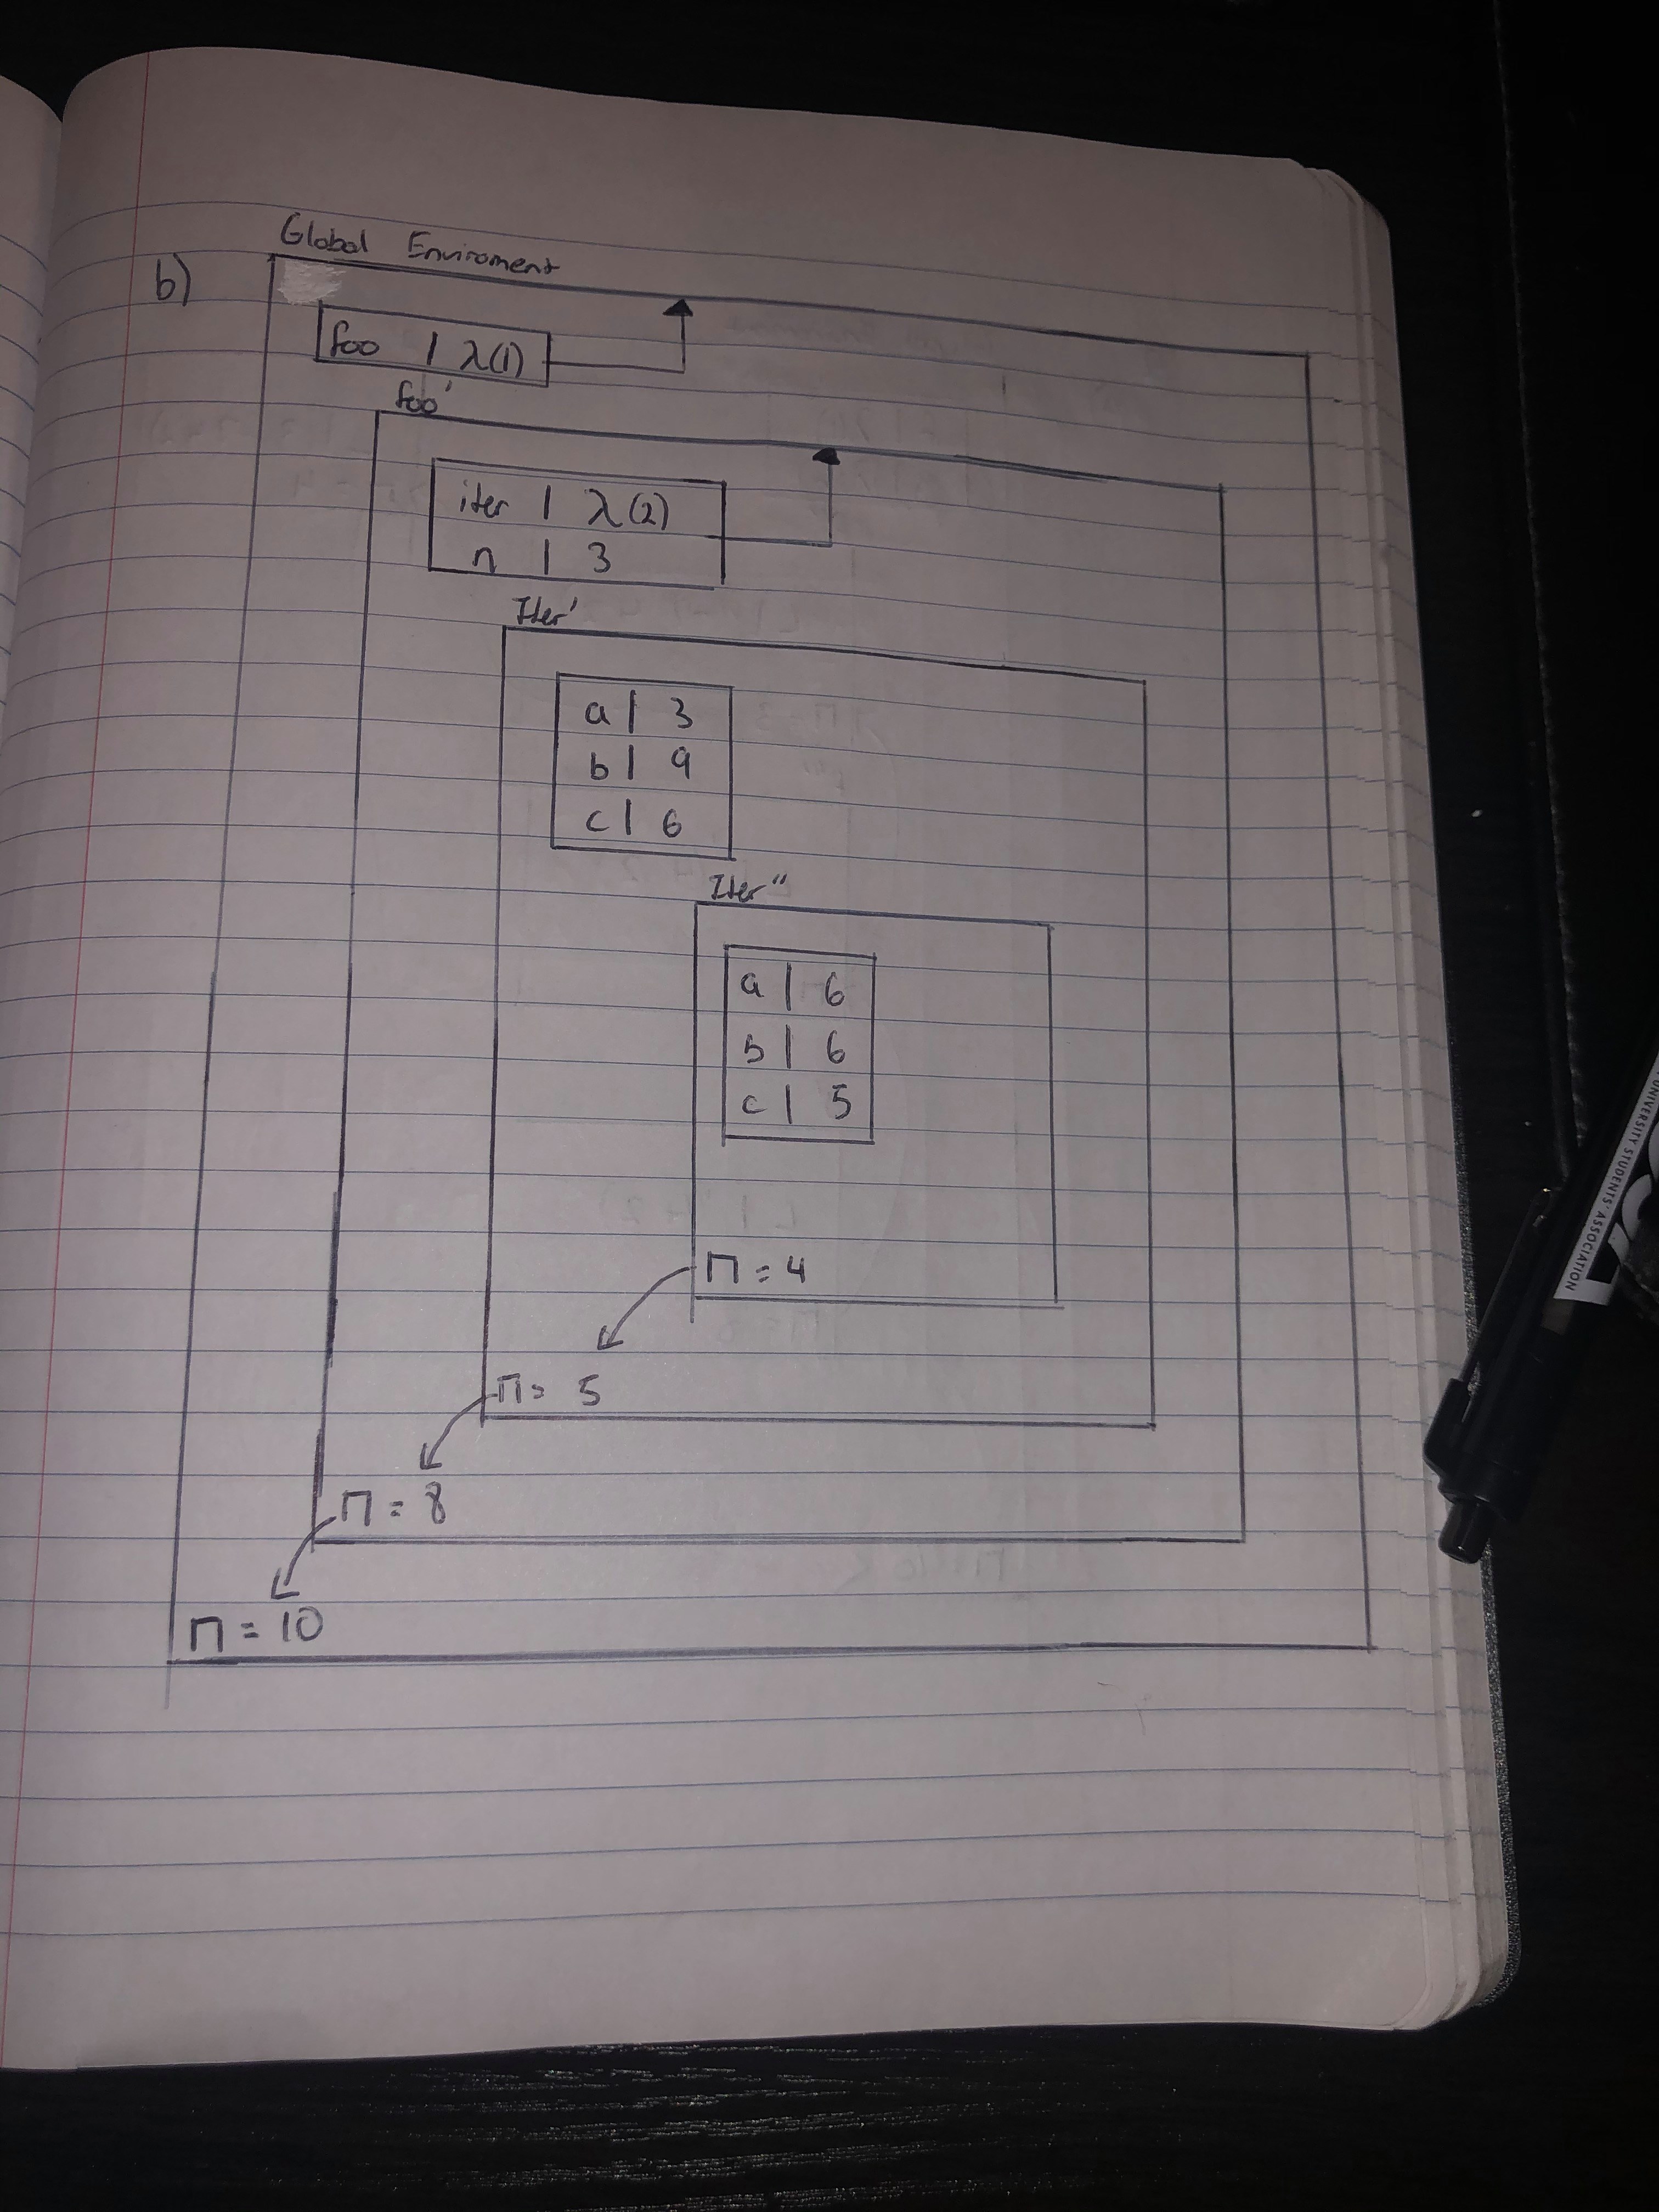 Global Enviroment
b)
foo | λ(1)
foo'
iter | λ(2)
n | 3
Iter'
a | 3
b | 9
c | 6
Iter"
a | 6
b | 6
c | 5
Π = 4
Π = 5
Π = 8
Π = 10
UNIVERSITY STUDENTS' ASSOCIATION